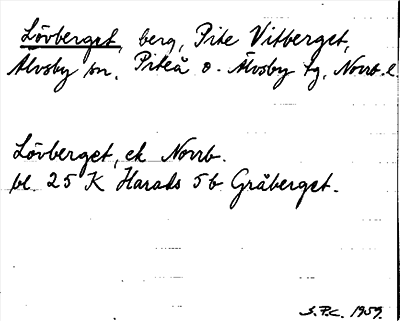 Lövberget, berg, Pite Vitberget,
Älvsby sn, Piteå o. Älvsby tg, Norrb. l.
Lövberget, ek Norrb.
bl. 25 K Harads 5b Gråberget.
S.P.C. 1959.